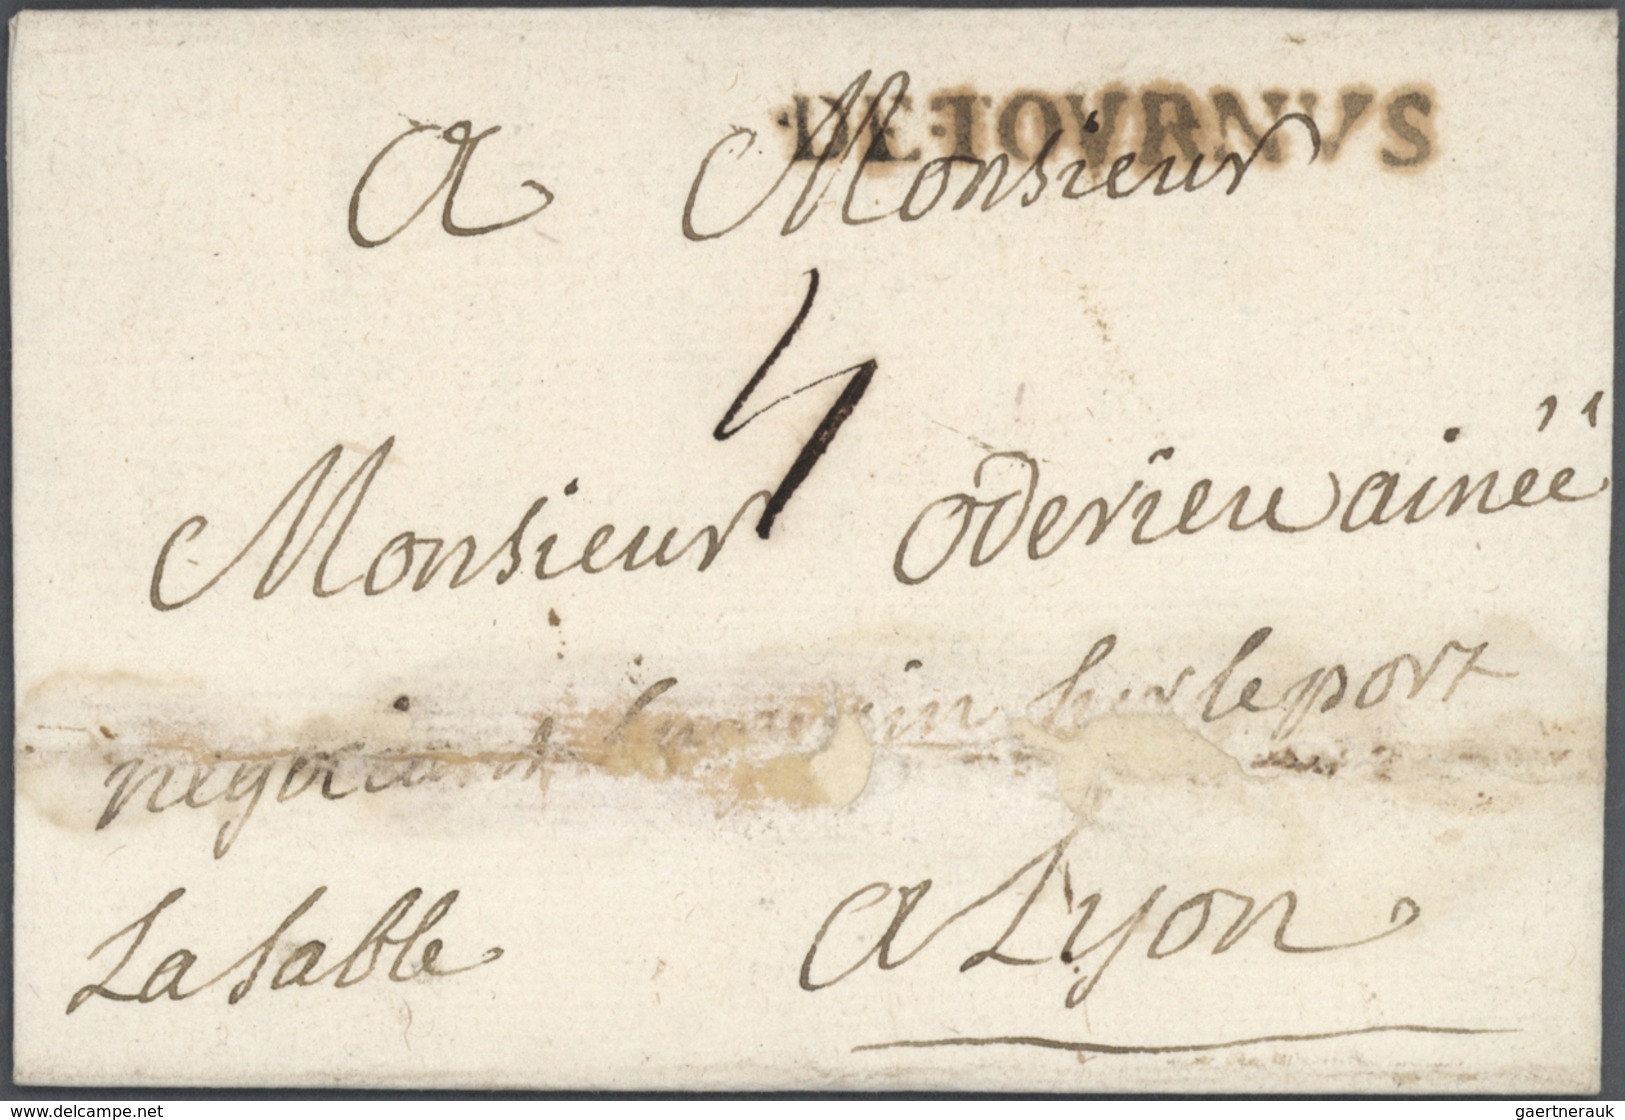 DE TOVRNVS
a Monsieur
4
Monsieur oderieu ainéé
negocient sur le port
La Sable
a Lyon
www.delcampe.net
gaertnerauk